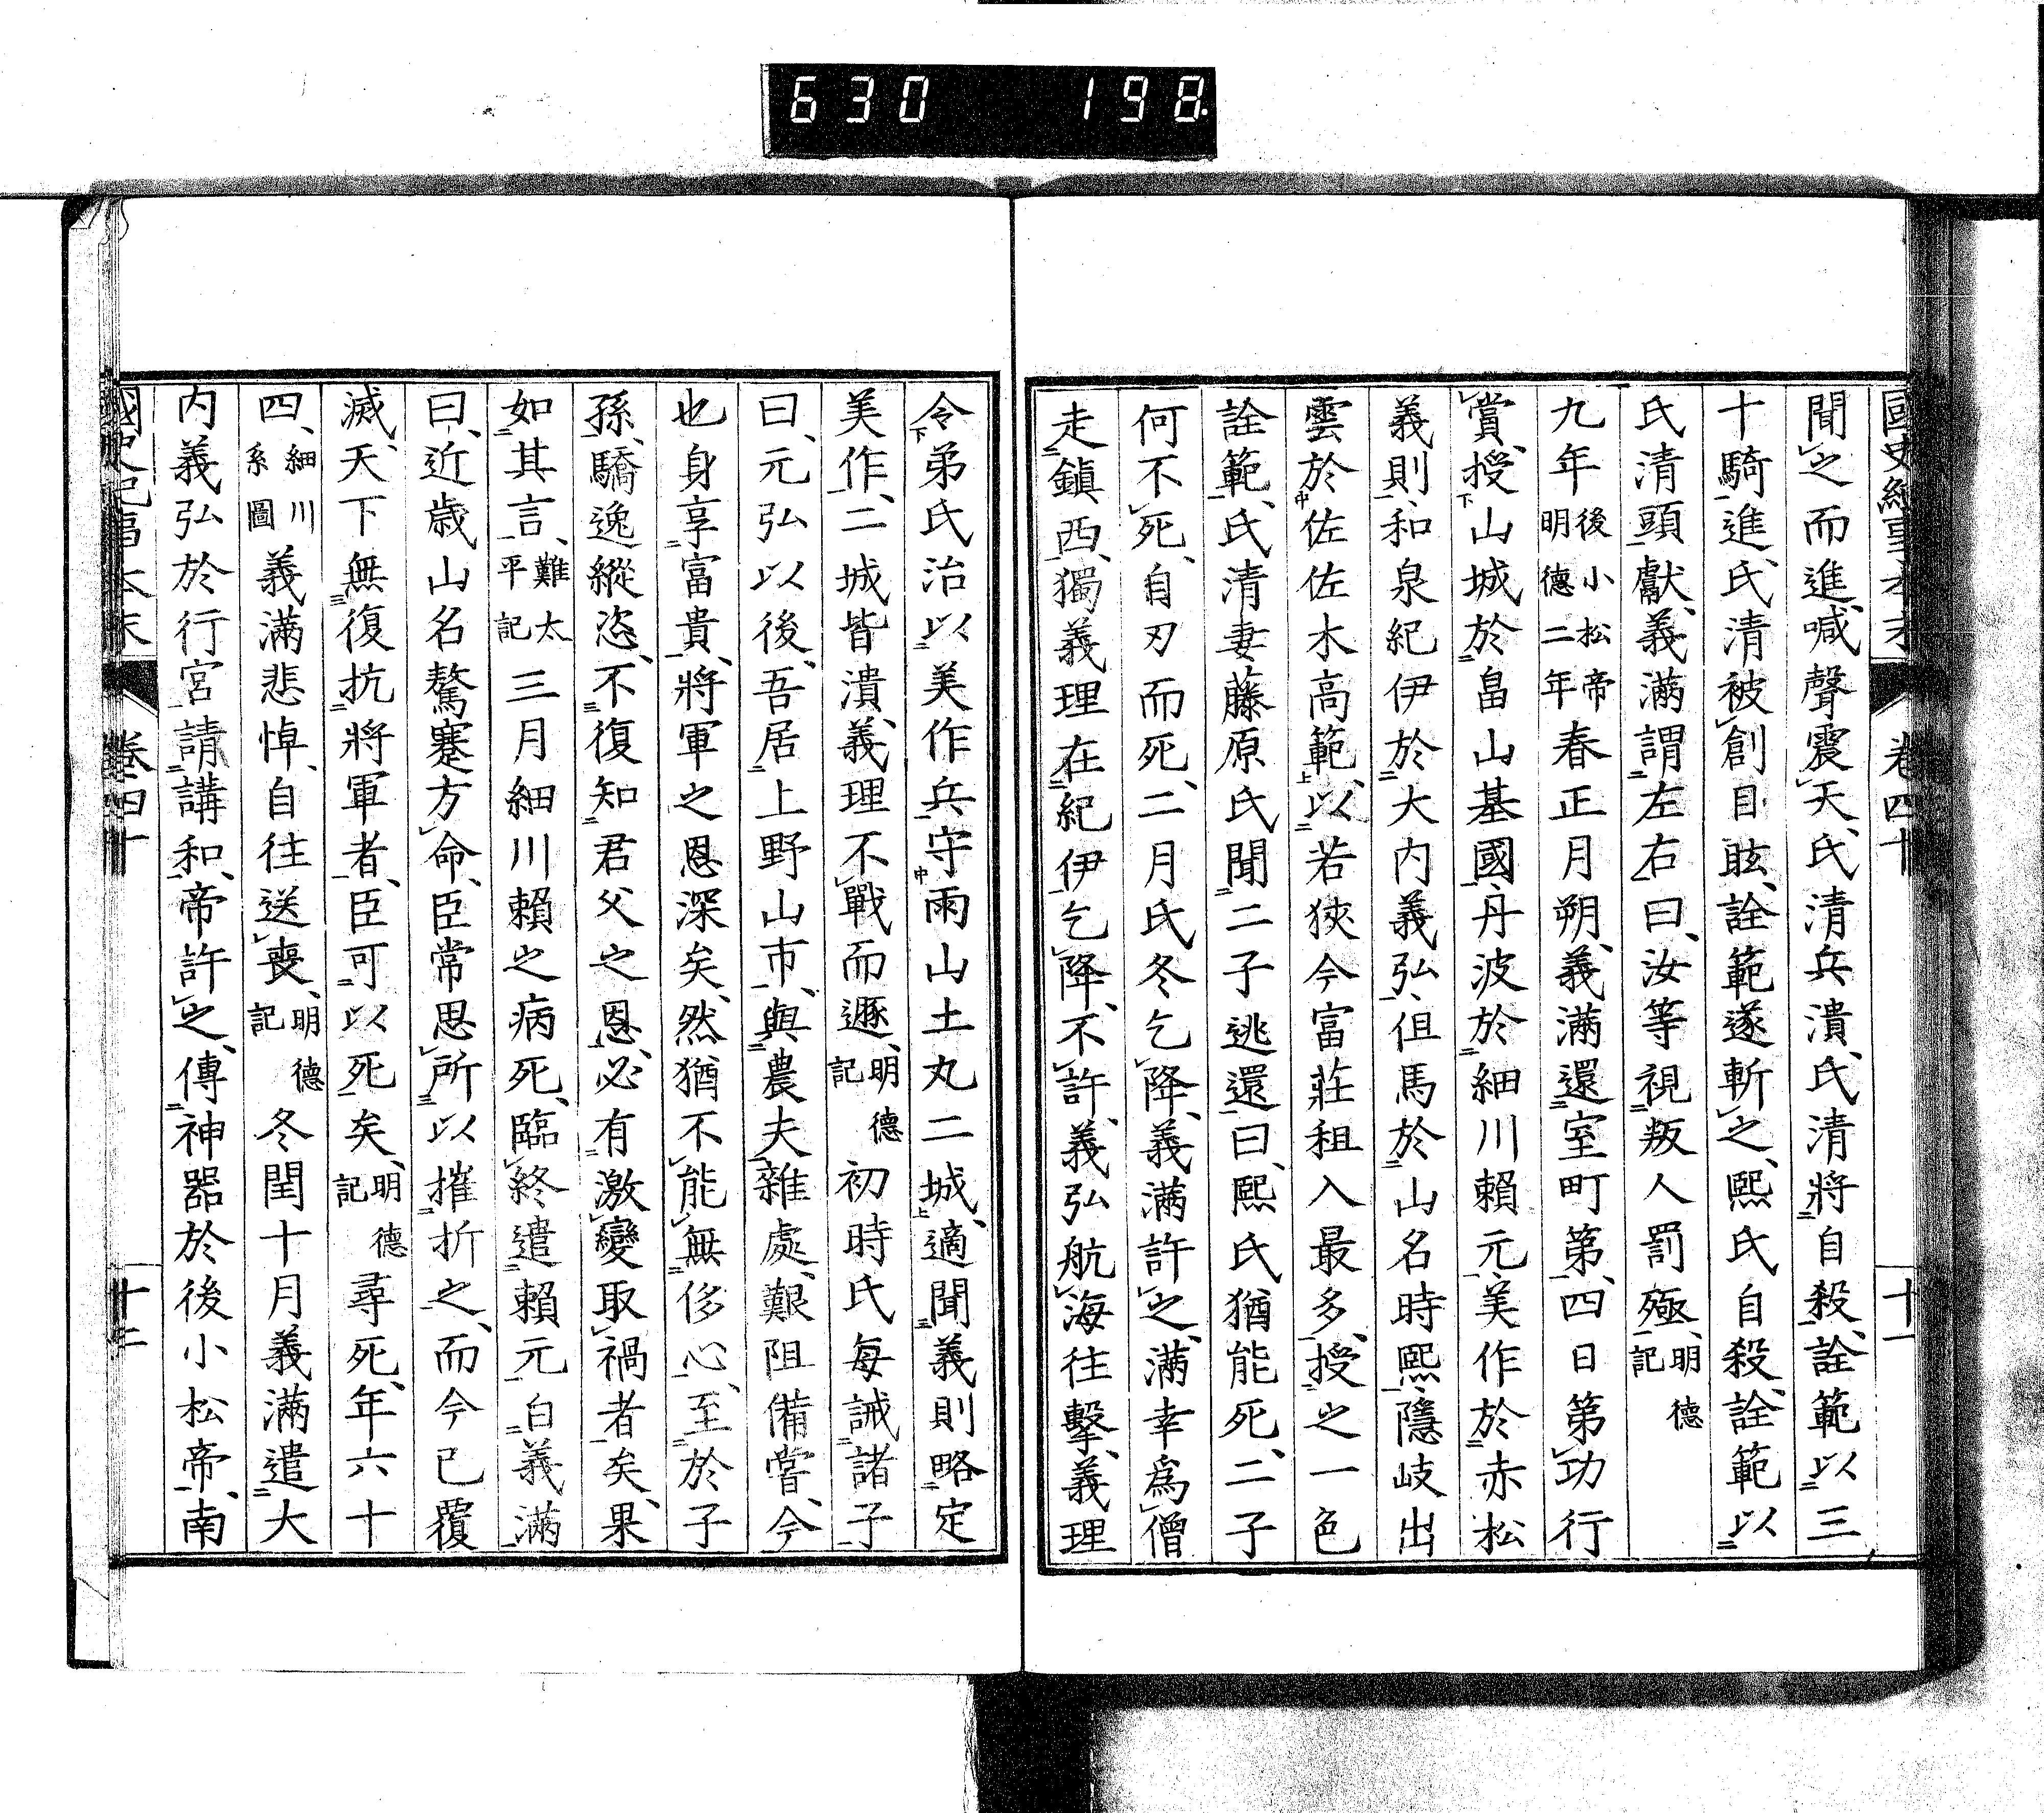 630 198
國史紀事本末 卷四十 十一
聞之而進、喊聲震天、氏清兵潰、氏清將自殺、詮範以三
十騎進、氏清被創目眩、詮範遂斬之、熙氏自殺、詮範以
氏清頭獻、義滿謂左右曰、汝等視叛人罰殛、明德記
九年後小松帝明德二年春正月朔、義滿還室町第、四日第功行
賞、授山城於畠山基國、丹波於細川賴元、美作於赤松
義則、和泉紀伊於大内義弘、但馬於山名時熙、隱岐出
雲於佐佐木高範、以若狹今富莊租入最多、授之一色
詮範、氏清妻藤原氏聞二子逃還曰、熙氏猶能死、二子
何不死、自刃而死、二月氏冬乞降、義滿許之、滿幸爲僧
走鎮西、獨義理在紀伊乞降、不許、義弘航海往擊、義理
令弟氏治以美作兵守雨山土丸二城、適聞義則略定
美作、二城皆潰、義理不戰而遯、明德記初時氏每誡諸子
曰、元弘以後、吾居上野山市、與農夫雜處、艱阻備嘗、今
也身享富貴、將軍之恩深矣、然猶不能無侈心、至於子
孫、驕逸縱恣、不復知君父之恩、必有激變取禍者矣、果
如其言、難太平記三月細川賴之病死、臨終遣賴元白義滿
曰、近歲山名驁蹇方命、臣常思所以摧折之、而今已覆
滅、天下無復抗將軍者、臣可以死矣、明德記尋死、年六十
四、細川系圖義滿悲悼、自往送喪、明德記冬閏十月義滿遣大
内義弘於行宮請講和、帝許之、傳神器於後小松帝、南
國史紀事本末 卷四十 十二